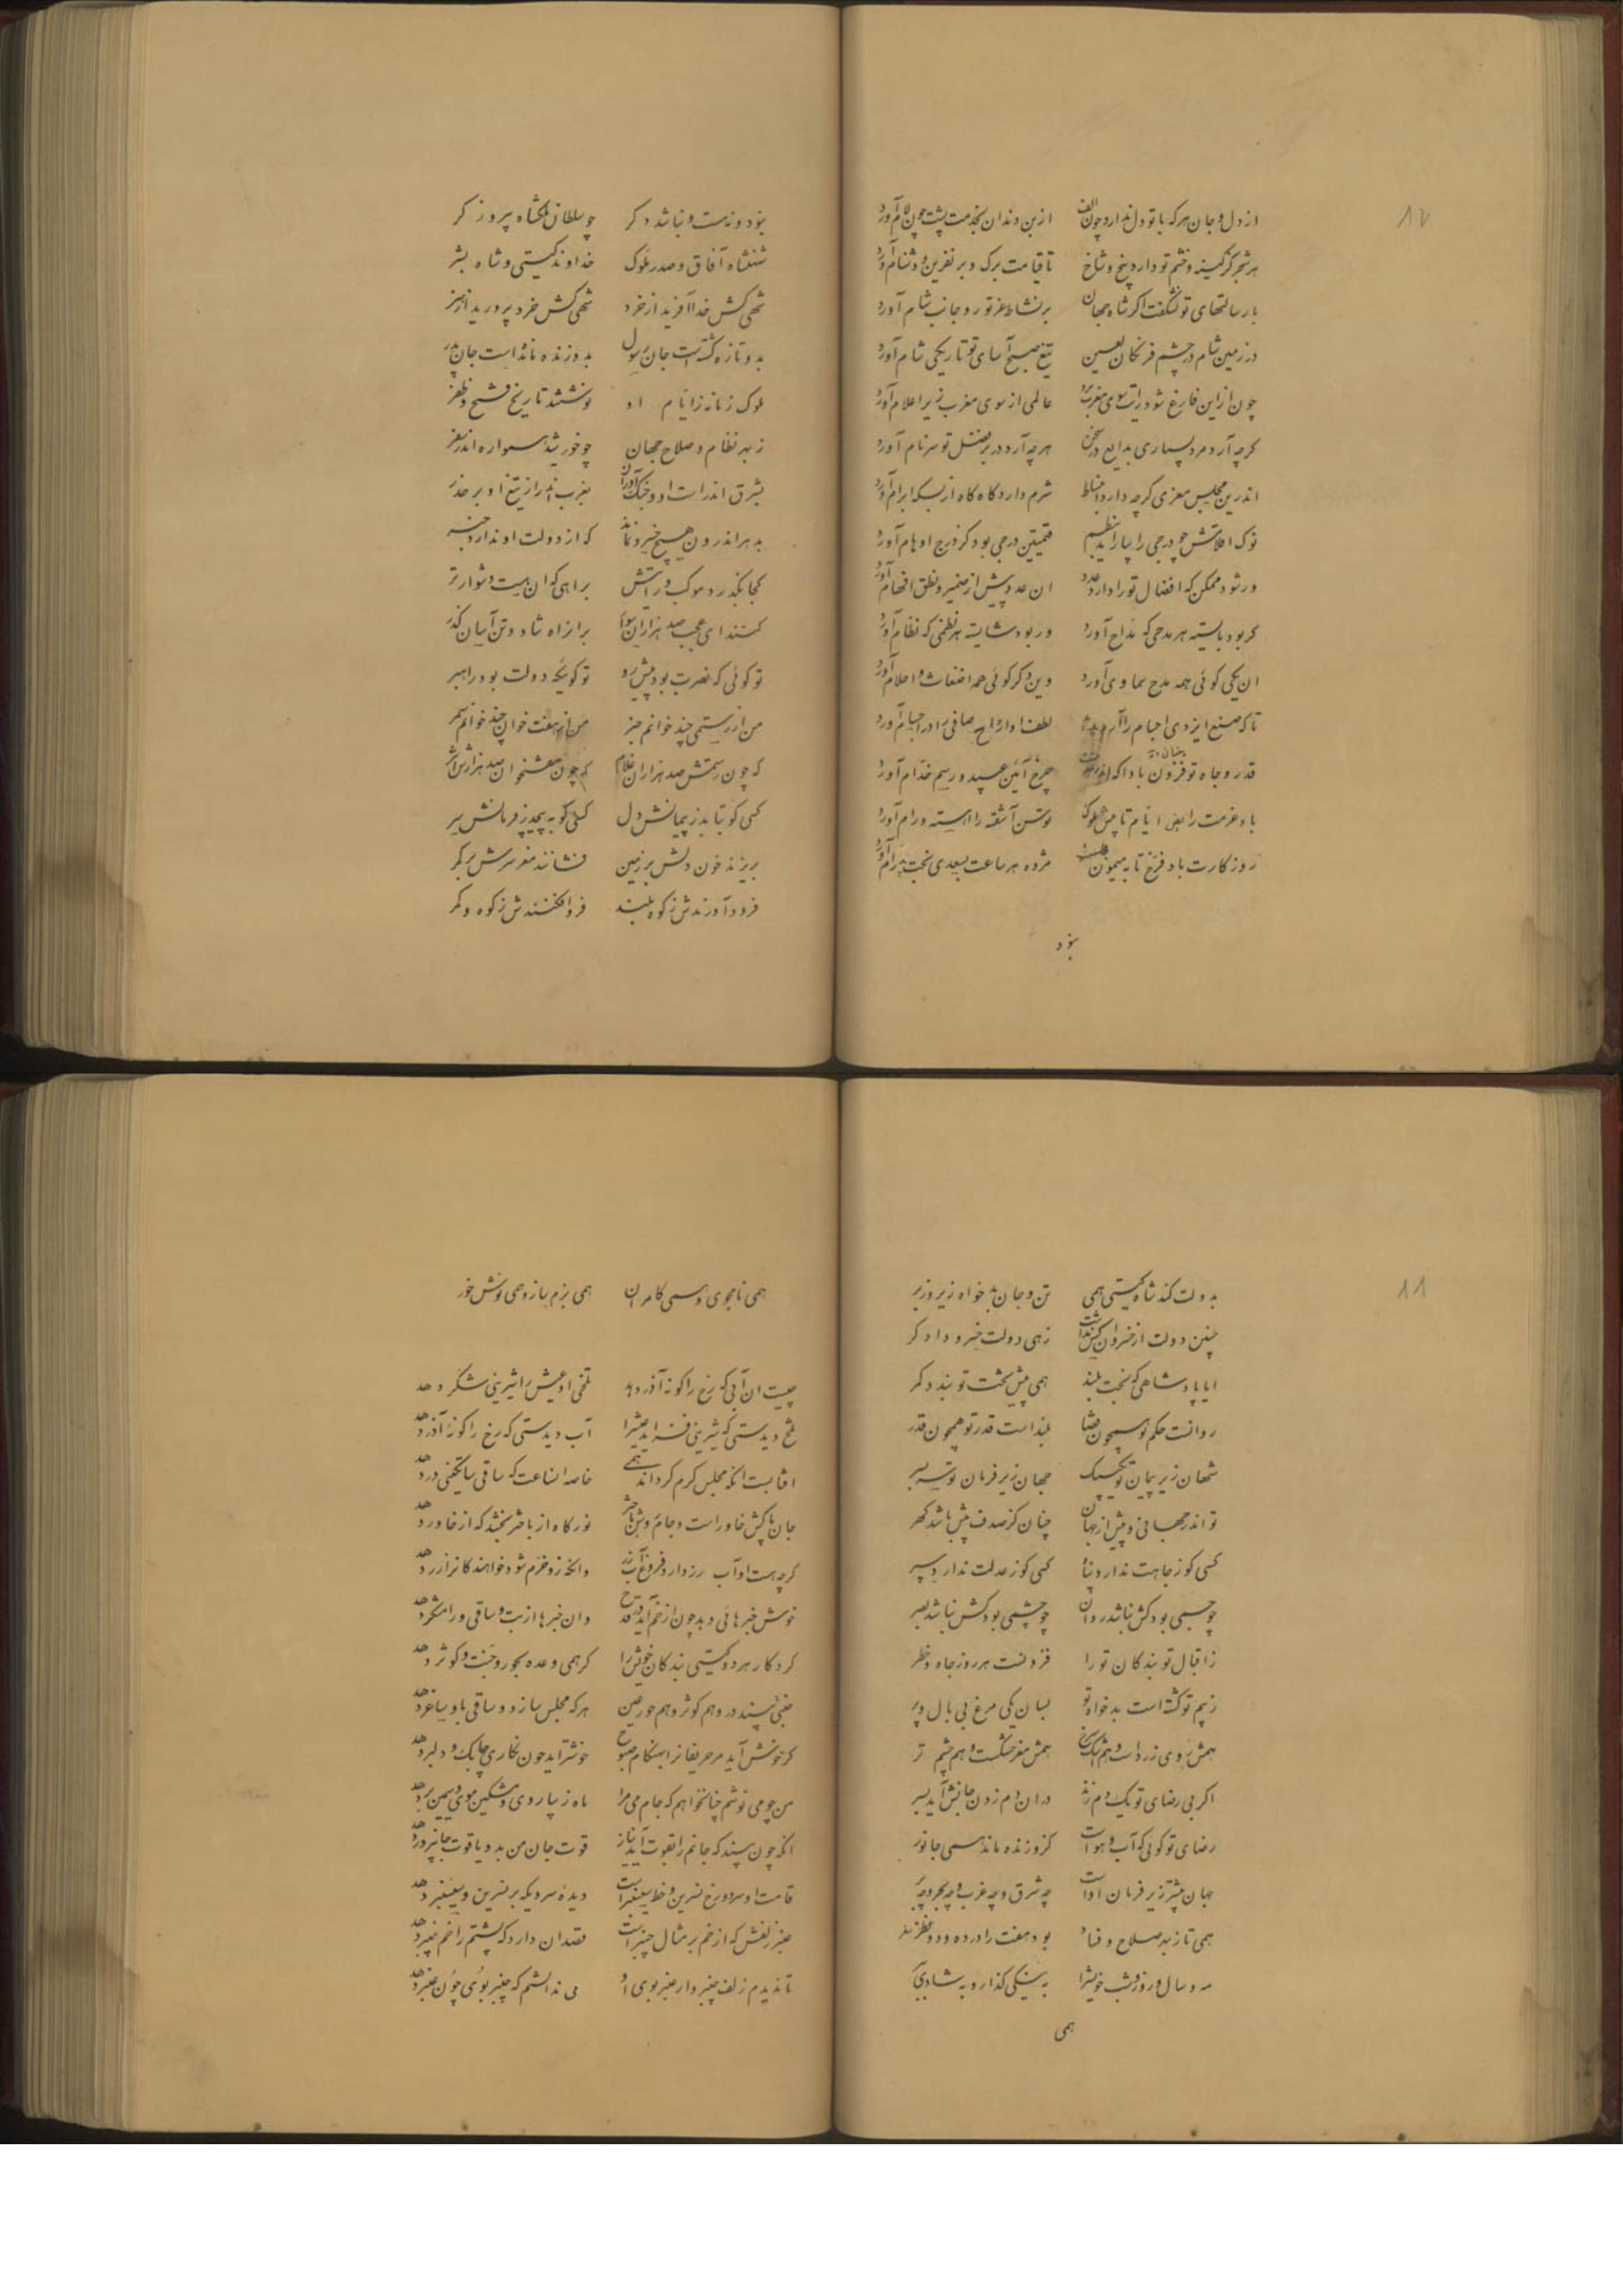 ۱۷
از دل و جان هر که با تو دل ندارد چون الف از بن دندان بخدمت پشت چون لام آورد
هر شجر کز کینه و خشم تو دارد بیخ و شاخ تا قیامت برک و بر نفرین و دشنام آورد
با رسالتهای تو نشگفت اکر شاه جهان بر نشاط غز تو رو جانب شام آورد
در زمین شام در چشم فرنکان لعین تیغ صبح آسای تو تاریکی شام آورد
چون ازاین فارغ شود رایت سوی مغرب برد عالمی از سوی مغرب زیر اعلام آورد
کرچه آرد مرد بسیاری بدایع در سخن هر چه آرد در بر فضل تو سر نام آورد
اندرین مجلس معزی کرچه دارد انبساط شرم دارد کاه کاه از بسکه ابرام آورد
نوک اقلامش چو درجی را بیاراید بنظم قیمتین درجی بود کز درج اوهام آورد
ور شود ممکن که افضال تو را دارد عدد ان عدد پیش از ضمیر و نطق افهام آورد
کر بود بایسته هر مدحی که مداح آورد ور بود شایسته هر نظمی که نظام آورد
ان یکی کوئی همه مدح سماوی آورد وین دکر کوئی همه اضغاث و احلام آورد
تا که صنع ایزدی اجسام را آرد پدید لطف او ارواح صافی را در اجسام آورد
قدر و جاه تو فزون بادا که چرخ آئین عبید و رسم خدام آورد
باد عزمت رایض ایام تا پیش ملوک توسن آشفته را اهسته و رام آورد
روز کارت باد فرخ تا به میمون مژده هر ساعت بسعدی بخت پدرام آورد
بنود
بنود و نه هست و نباشد دکر چو سلطان ملکشاه پیروز کر
شهنشاه آفاق و صدر ملوک خداوند کیتی و شاه بشر
شهی کش خدا آفرید از خرد شهی کش خرد پرورید از هنر
بدو تازه کشته است جان رسول بدو زنده مانده است جان پدر
ملوک زمانه ز ایام او نوشتند تاریخ فتح و ظفر
ز بهر نظام و صلاح جهان چو خورشید همواره اندر سفر
بشرق اندر است او و جنک آوران بغرب اندر از تیغ او بر حذر
بدهر اندرون هیچ خیری نماند که از دولت او ندارد خبر
کجا بکذرد موکب و رایتش براهی که ان نیست دشوارتر
کنند ای عجب صد هزاران سوار بر انراه شاد و تن آسان کذر
تو کوئی که نصرت بود پیش رو تو کوئیکه دولت بود راهبر
من از رستمی چند خوانم خبر من از هفت خوان چند خوانم سمر
که چون رستمش صد هزاران غلام که چون هفتخوان صد هزارش اثر
کسی کو بتابد ز پیمانش دل کسی کو به پیچد ز فرمانش سر
بریزند خون دلش بر زمین فشانند مغز سرش بر کمر
فرود آورندش ز کوه بلند فرو افکنندش ز کوه و کمر
۱۸
بدولت کند شاه کیتی همی تن و جان بدخواه زیر و زبر
چنین دولت از خسروان کس نداشت زهی دولت خسرو دادکر
ایا پادشاهی که بخت بلند همی پیش تخت تو بندد کمر
روانست حکم تو همچون قضا بلند است قدر تو همچون قدر
شهان زیر پیمان تو یکبیک جهان زیر فرمان تو سربسر
تو اندر جهانی و بیش از جهان چنان کز صدف بیش باشد کهر
کسی کو ز جاهت ندارد پناه کسی کو ز عدلت ندارد سپر
چو جسمی بود کش نباشد روان چو چشمی بود کش نباشد بصر
ز اقبال تو بندکان تو را فزونست هر روز جاه و خطر
ز بیم تو کشته است بدخواه تو بسان یکی مرغ بی بال و پر
همش روی زرد است و هم اشک سرخ همش مغز خشکست و هم چشم تر
اکر بی رضای تو یک دم زند در ان دم زدن جانش آید بسر
رضای تو کوئی که آب و هواست کزو زنده ماند همی جانور
جهان بیشتر زیر فرمان اوست چه شرق و چه غرب و چه بحر و چه بر
همی تا ز بهر صلاح و فساد بود هفت را در ده و دو نظر
مه و سال و روز و شب خویشرا به نیکی کذار و به شادی
همی
همی نامجوی و همی کامران همی بزم ساز و همی نوش خور
چیست ان آبی که رخ را کونه آذر دهد تلخی او عیش را شیرینی شکر دهد
تلخ دیدستی که شیرینی فزاید عیش را آب دیدستی که رخ را کونه آذر دهد
افتابست انکه مجلس کرم کرداند همی خاصه انساعت که ساقی ساتکینی در دهد
جان ما کش خاور است و جام روشن باختر نور کاه از باختر بخشد که از خاور دهد
کرچه هست او آب رز دارد فروغ آب زر وانکه زو خرم شود خواهد کانرا زر دهد
خوش خبرهائی دهد چون از خم آید در قدح وان خبرها از بت و ساقی و رامشکر دهد
کردکار هر دو کیتی بندکان خویش را کر همی وعده بحور و جنت و کوثر دهد
جنتی بیند در و هم کوثر و هم حور عین هر که مجلس سازد و ساقی باو ساغر دهد
کر خوش آید مر حریفانرا بهنکام صبوح خوشتر اید چون نکاری چابک و دلبر دهد
من چو می نوشم چنان خواهم که جام می مرا ماه زیبا روی و مشکین موی و سیمین بر دهد
انکه چون بیند که جانم را بقوت آید نیاز قوت جان من بدو یاقوت جانپرور دهد
قامت او سرو و رخ نسرین و خط سیسنبر است دیدهٔ سرویکه بر نسرین و سیسنبر دهد
عنبر زلفش که از خم بر مثال چنبر است قصد ان دارد که پشتم را خم چنبر دهد
تا ندیدم زلف چنبروار عنبر بوی او می ندانستم که چنبر بوی چون عنبر دهد